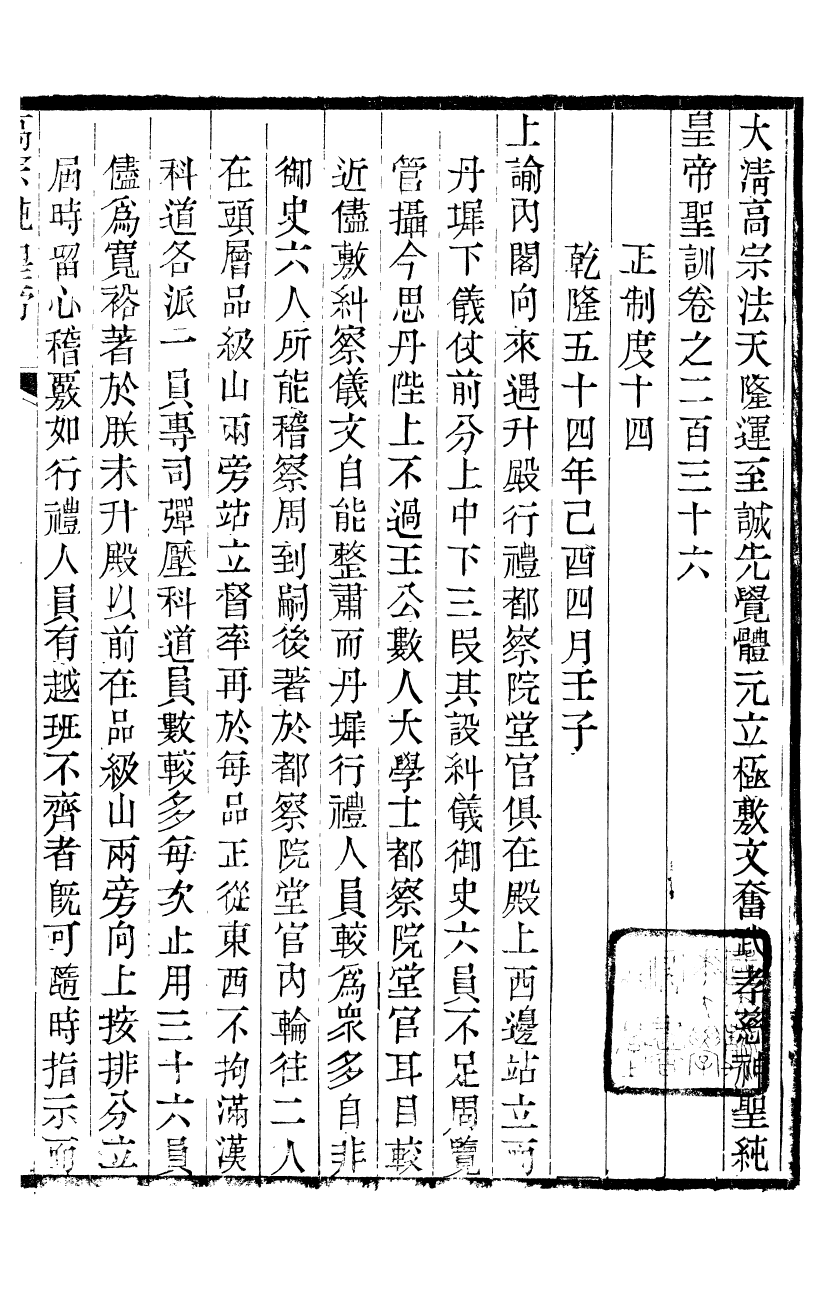 大清高宗法天隆運至誠先覺體元立極敷文奮武孝慈神聖純
皇帝聖訓卷之二百三十六
正制度十四
乾隆五十四年己酉四月壬子
上諭內閣向來遇升殿行禮都察院堂官俱在殿上西邊站立而
丹墀下儀仗前分上中下三段其設糾儀御史六員不足周覽
管攝今思丹陛上不過王公數人大學士都察院堂官耳目較
近儘敷糾察儀文自能整肅而丹墀行禮人員較爲衆多自非
御史六人所能稽察周到嗣後著於都察院堂官內輪往二人
在頭層品級山兩旁站立督率再於每品正從東西不拘滿漢
科道各派一員專司彈壓科道員數較多每次止用三十六員
儘爲寬裕著於朕未升殿以前在品級山兩旁向上按排分立
屆時留心稽覈如行禮人員有越班不齊者既可隨時指示而
高宗純皇帝